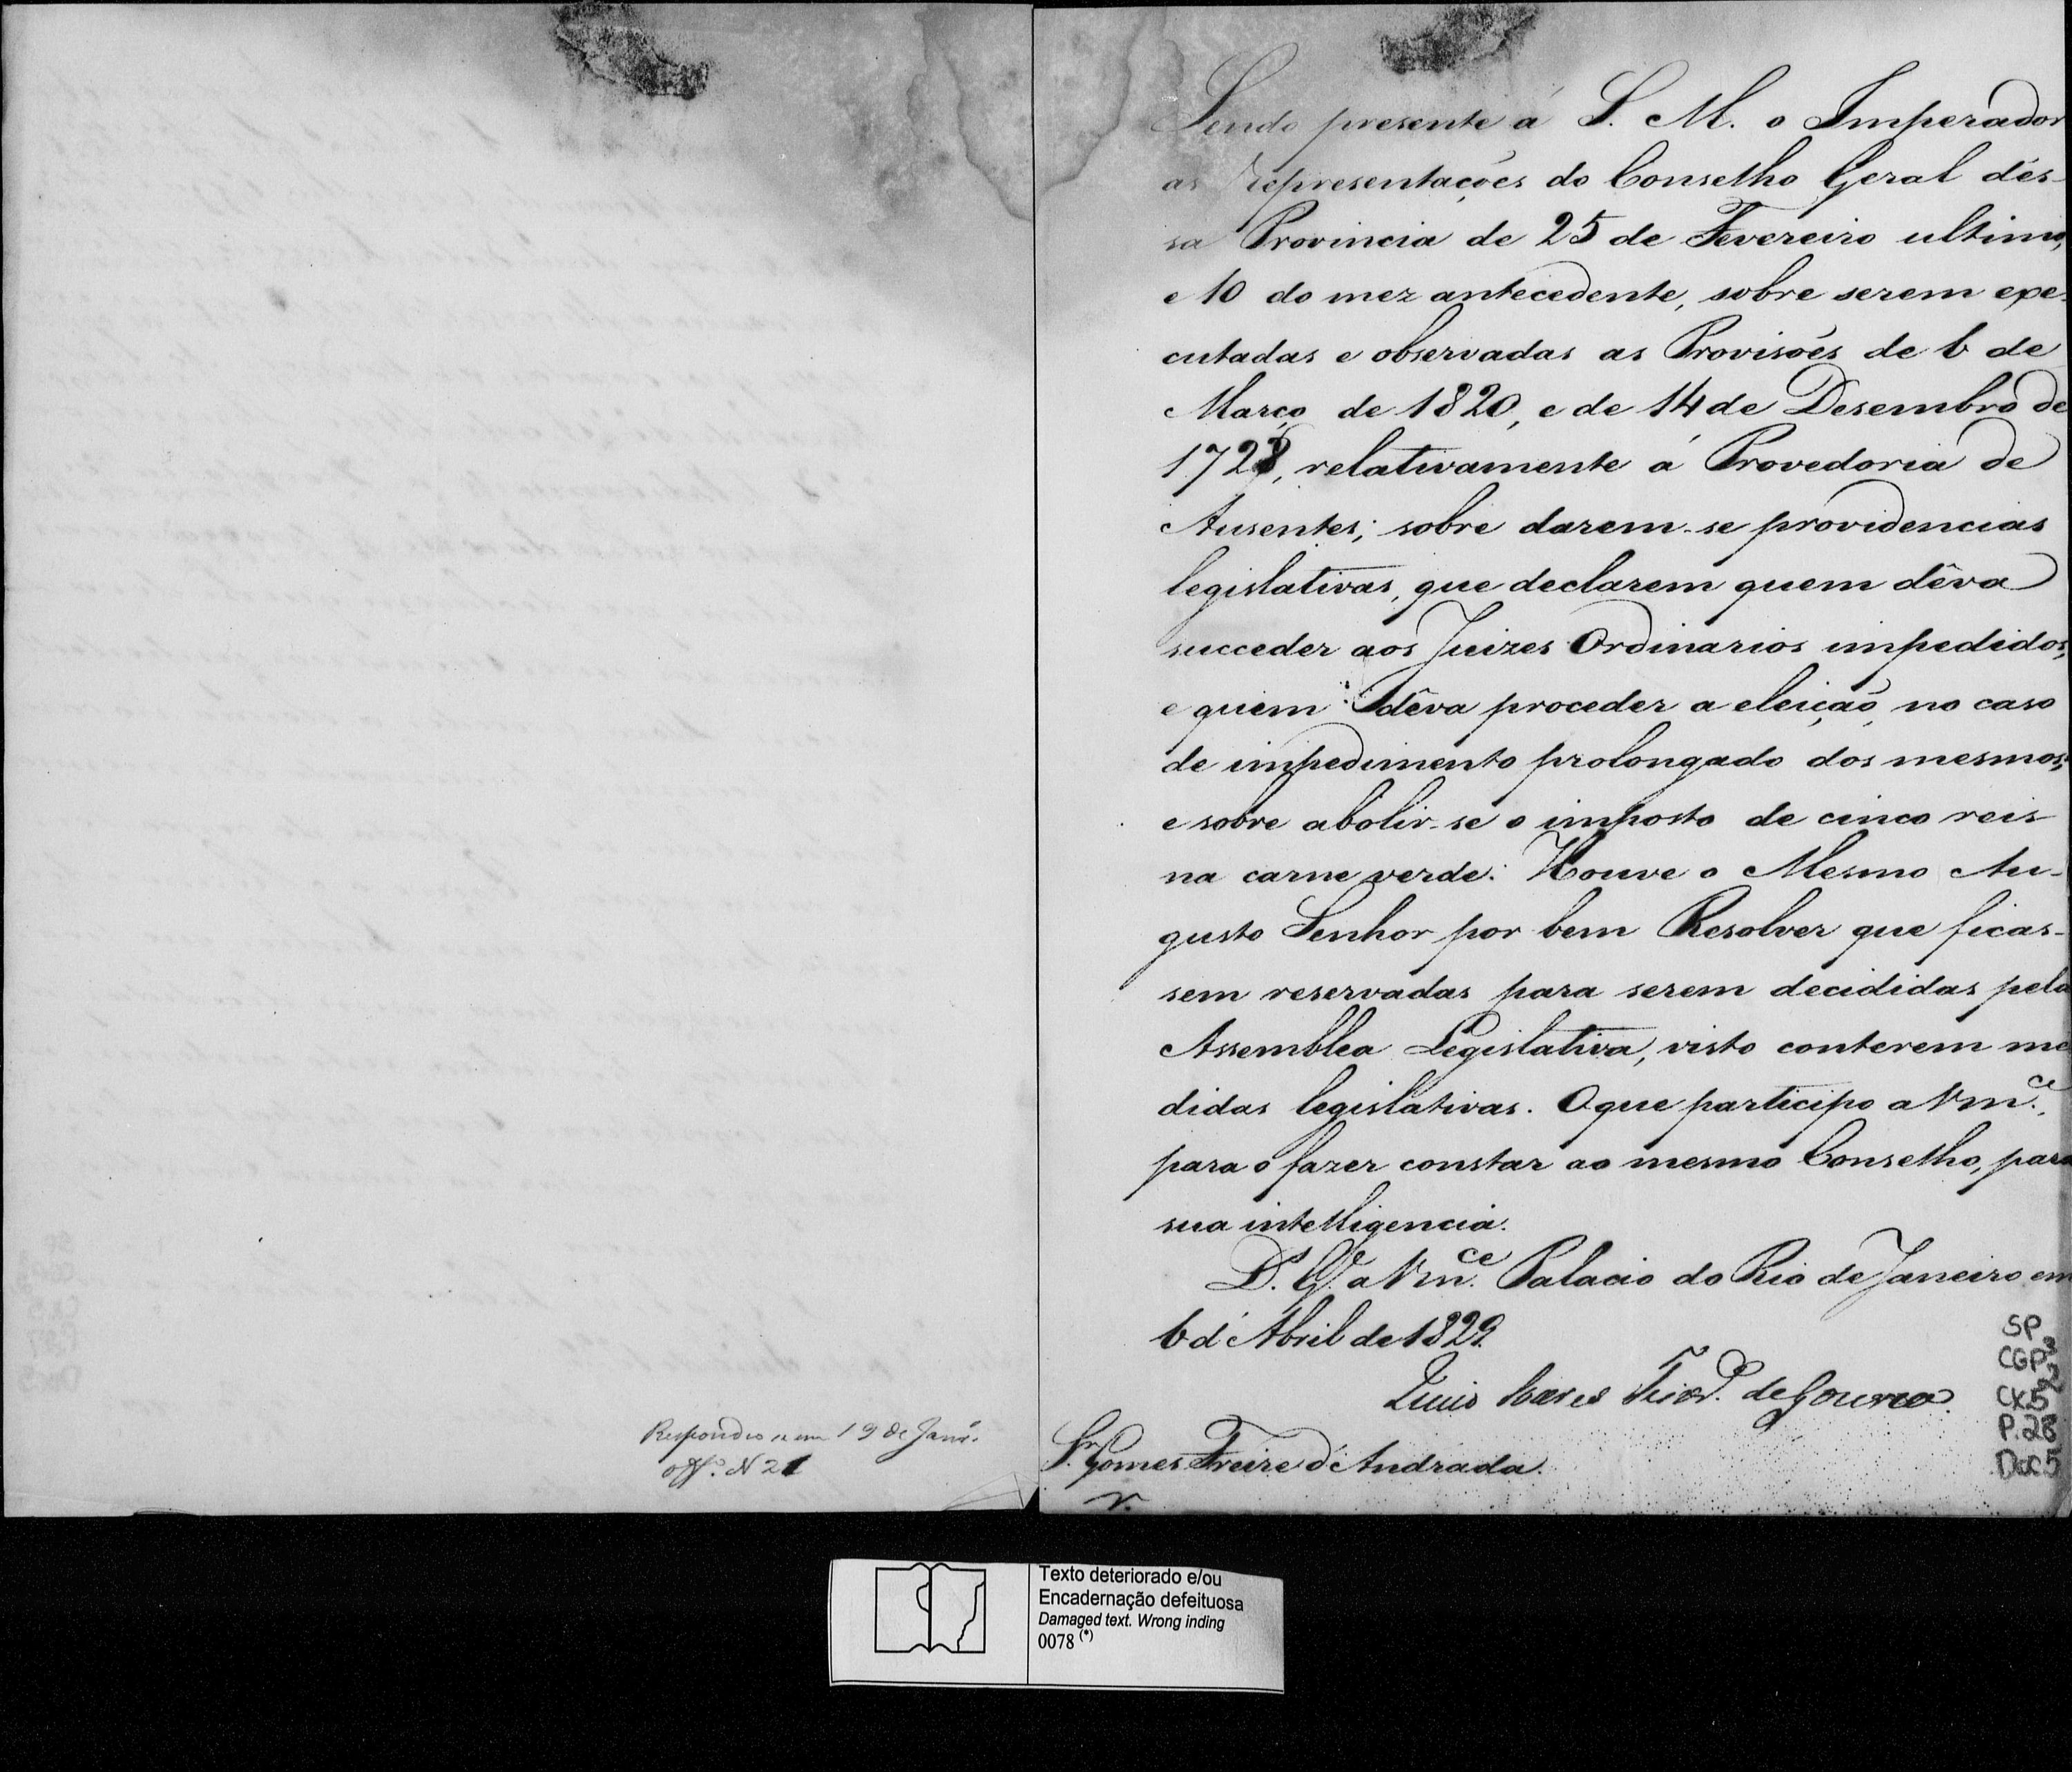 Respondeo se em 19 de Janr.º
Off.º N 21
Sendo presente á S. M. o Imperador
as Representações do Conselho Geral dés-
sa Provincia de 25 de Fevereiro ultimo,
e 10 do mez antecedente, sobre serem exe-
cutadas e observadas as Provisões de 6 de
Março de 1820, e de 14 de Desembro de
1728, relativamente á Provedoria de
Ausentes; sobre darem-se providencias
legislativas, que declarem quem dêva
succeder aos Juizes Ordinarios impedidos,
e quem dêva proceder a eleição no caso
de impedimento prolongado dos mesmos;
e sobre abolir-se o imposto de cinco reis
na carne verde: Houve o Mesmo Au-
gusto Senhor por bem Resolver que ficas-
sem reservadas para serem decididas pela
Assemblea Legislativa, visto conterem me
didas legislativas. O que participo a Vm.ce,
para o fazer constar ao mesmo Conselho, para
sua intelligencia.
D.s G.e a Vm.ce Palacio do Rio de Janeiro em
6 d'Abril de 1829.
Lucio Soares Teix.ra de Gouvea
S.r Gomes Freire d'Andrada.
SP
CGP3
CX5
P.28
Doc5
Texto deteriorado e/ou
Encadernação defeituosa
Damaged text. Wrong inding
0078 (*)